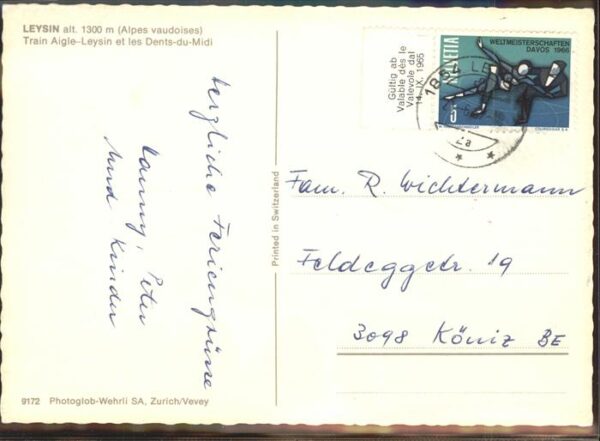 LEYSIN alt. 1300 m (Alpes vaudoises)
Train Aigle-Leysin et les Dents-du-Midi
herzliche Feriengrüsse
Peter
und Kinder
Printed in Switzerland
9172 Photoglob-Wehrli SA, Zurich/Vevey
Gültig ab
Valable dès le
Valevole dal
14. IX. 1965
HELVETIA
WELTMEISTERSCHAFTEN
DAVOS 1966
5
COURVOISIER S.A.
1854 LEYSIN
2a
Fam. R. Wichtermann
Feldeggstr. 19
3098 Köniz BE